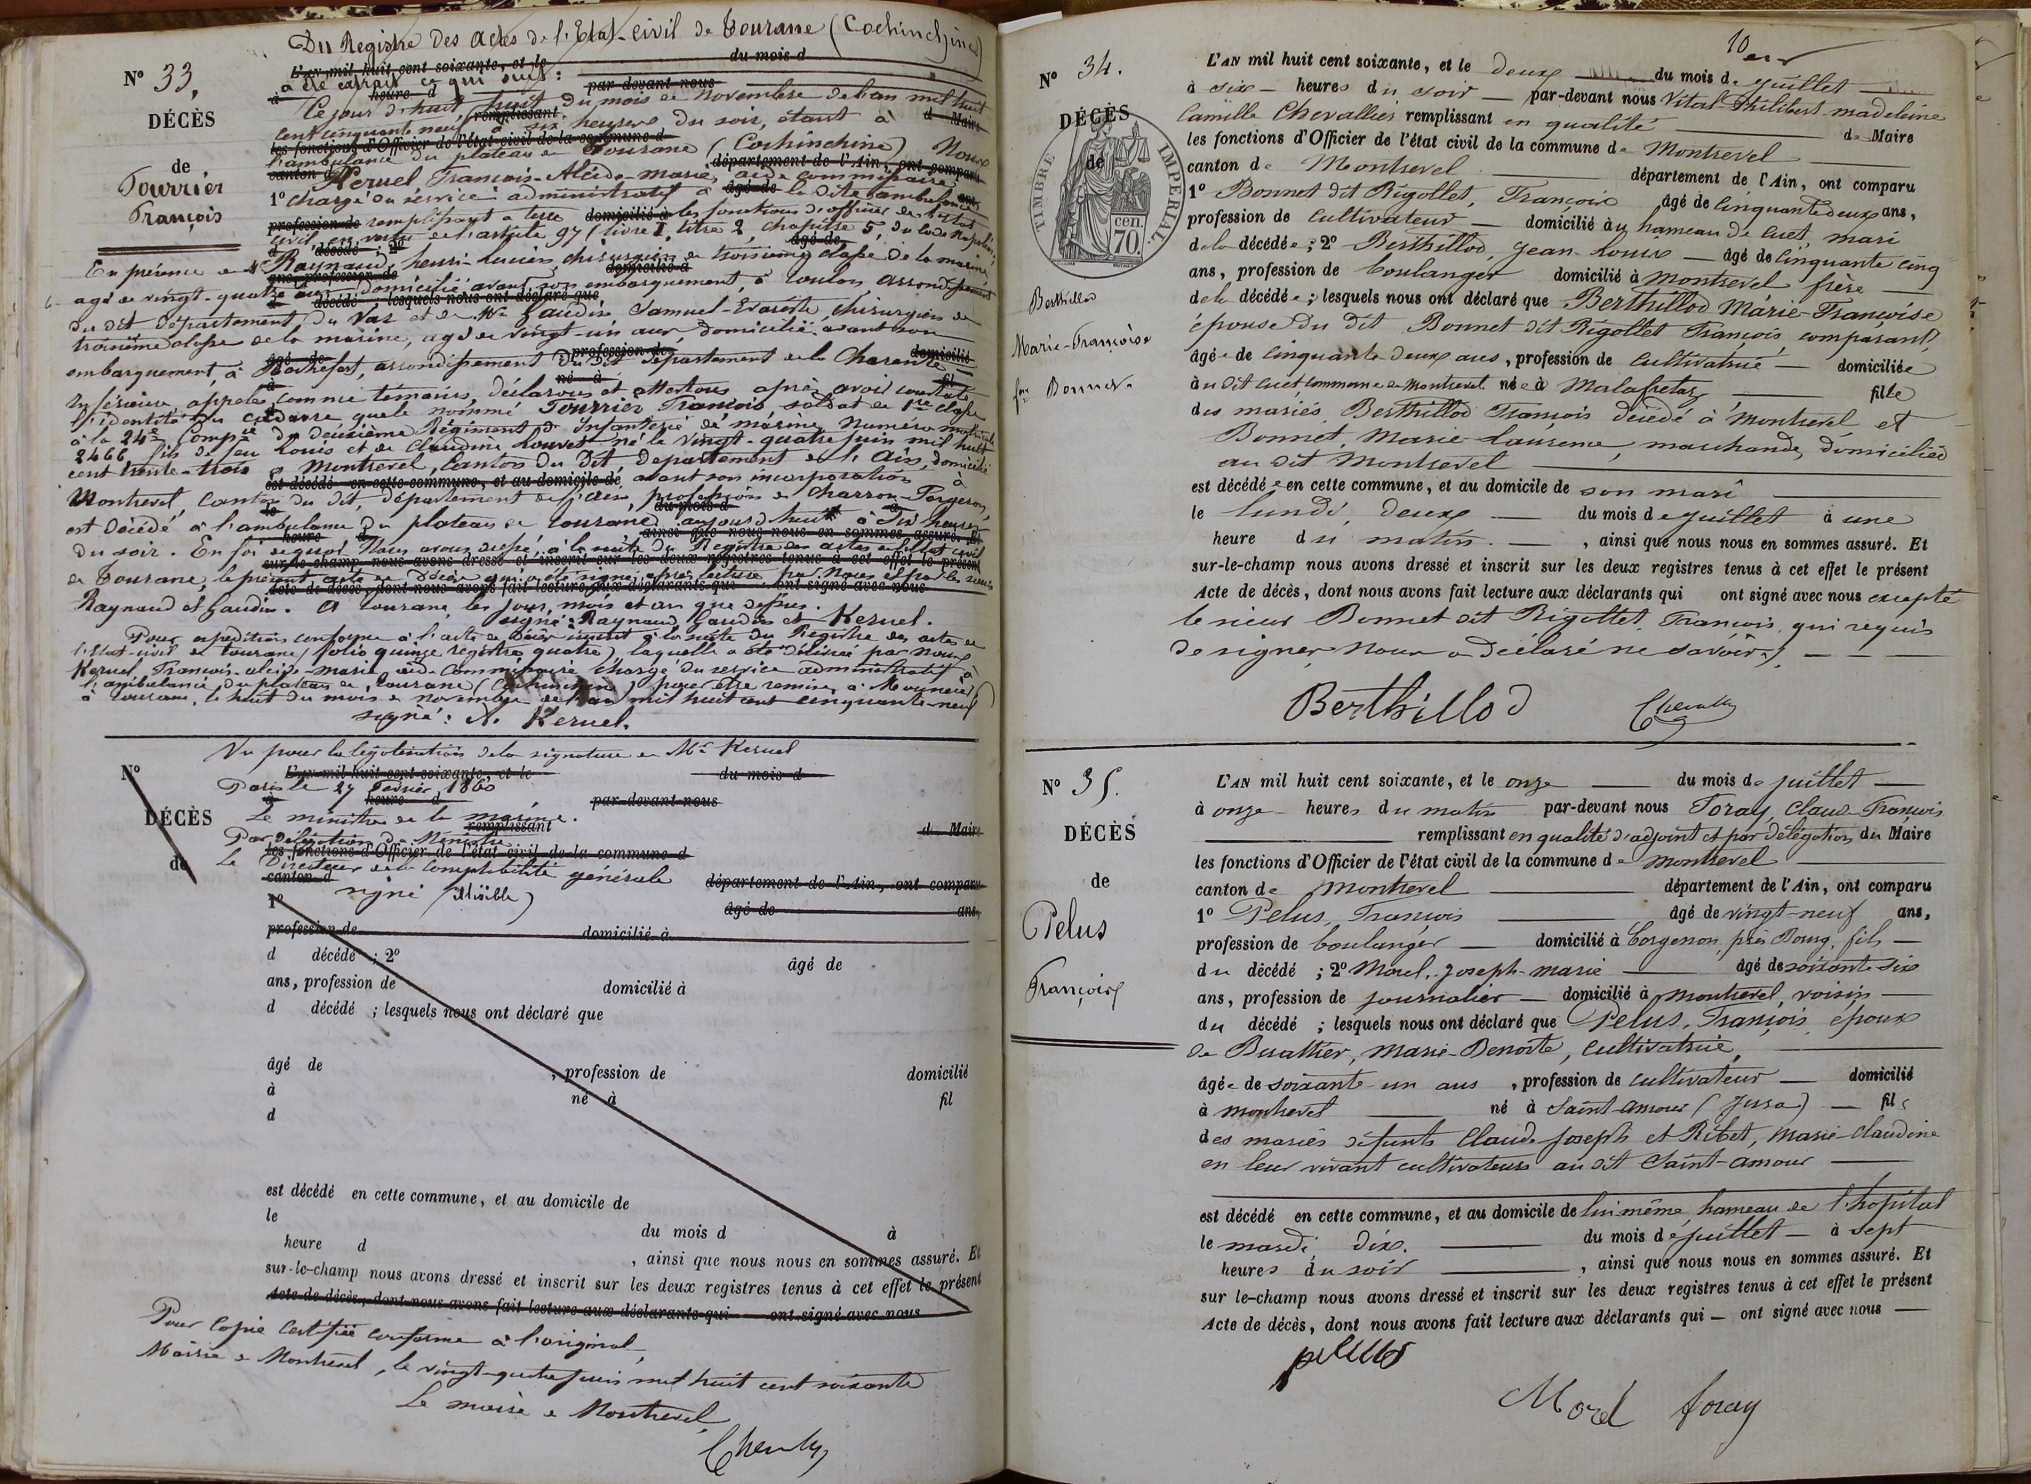 Du Registre des actes de l'Etat-civil de Tourane (Cochinchine)
N° 33.
L'AN mil huit cent soixante, et le du mois d
a été extrait ce qui suit :
à heure d par-devant nous
Ce jour d'huit, huit du mois de Novembre de l'an mil huit
remplissant d Maire
cent cinquante neuf, à six heures du soir, étant à
les fonctions d'Officier de l'état civil de la commune d
l'ambulance du plateau de Tourane (Cochinchine) Nous
canton d département de l'Ain, ont comparu
Keruel François-Alcide-marie, aide commissaire
1° chargé du service administratif à la dite ambulance
âgé de ans,
profession de domicilié à
remplissant à terre les fonctions d'officier de l'état
civil, en vertu de l'article 97 (livre I, titre 2, chapitre 5, du Code Napoléon)
d décédé ; 2° âgé de
En présence de Mr Raynaud, henri-lucien, chirurgien de troisième classe de la marine,
ans, profession de domicilié à
agé de vingt-quatre ans, domicilié avant son embarquement, à Toulon arrondissement
d décédé ; lesquels nous ont déclaré que
du dit département du Var et de Mr Gaudin Samuel-Evariste, chirurgien de
troisième classe de la marine, agé de vingt-un ans, domicilié avant son
âgé de profession de domicilié
embarquement, à Rochefort, arrondissement du dit département de la Charente
à né à fil
Inférieure, appelés comme témoins, déclarons et attestons après avoir constaté
l'identité du cadavre que le nommé Fourrier François, soldat de 1re classe
à la 24e Compie du deuxième Régiment d'Infanterie de marine, Numéro matricule
2466, fils de feu Louis et de Claudine Louvet né le vingt-quatre juin mil huit
cent trente-trois à Montrevel, Canton du dit département de l'Ain, domicilié
est décédé en cette commune, et au domicile de avant son incorporation à
Montrevel, Canton du dit, département de l'Ain, profession de Charron-Forgeron,
le du mois d à
est décédé à l'ambulance du plateau de Tourane aujourd'huit à six heures
heure d ainsi que nous nous en sommes assuré. Et
du soir. En foi de quoi Nous avons dressé, à la suite du Registre des actes de l'état civil
sur-le-champ nous avons dressé et inscrit sur les deux registres tenus à cet effet le présent
de Tourane, le présent acte de décès qui a été signé, après lecture par Nous et par les sieurs
Acte de décès, dont nous avons fait lecture aux déclarants qui ont signé avec nous
Raynaud et Gaudin. A Tourane les jour, mois et an que dessus.
signé : Raynaud, Gaudin et Keruel.
Pour expédition conforme à l'acte de décès inscrit à la suite du Registre des actes de
l'Etat-civil de Tourane (folio quinze registre quatre) laquelle a été délivrée par Nous
Keruel, François-alcide-marie, aide Commissaire Chargé du service administratif à
l'ambulance du plateau de Tourane (Cochinchine) pour être remise à Monsieur
à Tourane, le huit du mois de novembre de l'an mil huit cent cinquante-neuf
signé : A. Keruel.
DÉCÈS
de
Fourrier
François
Vu pour la légalisation de la signature de Mr Keruel
N°
L'AN mil huit cent soixante, et le du mois d
Paris le 27 Février 1860
à heure d par-devant nous
Le ministre de la marine.
remplissant d Maire
Par délégation du Ministre
les fonctions d'Officier de l'état civil de la commune d
Le Directeur de la Comptabilité générale
canton d département de l'Ain, ont comparu
signé (illisible)
1° âgé de ans,
profession de domicilié à
d décédé ; 2° âgé de
ans, profession de domicilié à
d décédé ; lesquels nous ont déclaré que
âgé de , profession de domicilié
à né à fil
d
est décédé en cette commune, et au domicile de
le du mois d à
heure d , ainsi que nous nous en sommes assuré. Et
sur-le-champ nous avons dressé et inscrit sur les deux registres tenus à cet effet le présent
Acte de décès, dont nous avons fait lecture aux déclarants qui ont signé avec nous
Pour Copie Certifiée conforme à l'original,
Mairie de Montrevel, le vingt-quatre juin mil huit cent soixante
Le maire de Montrevel,
DÉCÈS
de
10
N° 34.
DÉCÈS
de
TIMBRE IMPERIAL
cen.
70.
Berthillod
Marie-Françoise
fme Bonnet
L'AN mil huit cent soixante, et le deux du mois de juillet
à six heures du soir par-devant nous Vital Philibert madeleine
Camille Chevallier remplissant en qualité de Maire
les fonctions d'Officier de l'état civil de la commune de Montrevel
canton de Montrevel département de l'Ain, ont comparu
1° Bonnet dit Rigollet, François âgé de cinquante deux ans,
profession de cultivateur domicilié au hameau de Cuet, mari
de la décédée ; 2° Berthillod, Jean-Louis âgé de cinquante cinq
ans, profession de boulanger domicilié à Montrevel frère
de la décédée ; lesquels nous ont déclaré que Berthillod Marie-Françoise
épouse du dit Bonnet dit Rigollet François, comparant,
âgée de cinquante deux ans, profession de cultivatrice domiciliée
au dit Cuet, commune de Montrevel née à Malafretaz fille
des mariés Berthillod François décédé à Montrevel et
Bonnet, Marie-Laurence, marchande, domiciliée
au dit Montrevel
est décédée en cette commune, et au domicile de son mari
le lundi, deux du mois de juillet à une
heure du matin , ainsi que nous nous en sommes assuré. Et
sur-le-champ nous avons dressé et inscrit sur les deux registres tenus à cet effet le présent
Acte de décès, dont nous avons fait lecture aux déclarants qui ont signé avec nous excepté
le sieur Bonnet dit Rigollet François qui requis
de signer nous a déclaré ne savoir.
Berthillod
N° 35.
DÉCÈS
de
Pelus
François
L'AN mil huit cent soixante, et le onze du mois de juillet
à onze heures du matin par-devant nous Foray, Claude-François
remplissant en qualité d'adjoint et par délégation du Maire
les fonctions d'Officier de l'état civil de la commune de Montrevel
canton de Montrevel département de l'Ain, ont comparu
1° Pelus, François âgé de vingt-neuf ans,
profession de boulanger domicilié à Corgenon, près Bourg, fils
du décédé ; 2° Morel, Joseph-marie âgé de soixante six
ans, profession de journalier domicilié à Montrevel, voisin
du décédé ; lesquels nous ont déclaré que Pelus, François, époux
de Buathier, Marie-Benoite, cultivatrice,
âgé de soixante un ans, profession de cultivateur domicilié
à Montrevel né à Saint-Amour (Jura) fils
des mariés défunts Claude Joseph et Ribet, Marie-Claudine
en leur vivant cultivateurs au dit Saint-Amour
est décédé en cette commune, et au domicile de lui même, hameau de l'hopital
le mardi, dix. du mois de juillet à sept
heures du soir , ainsi que nous nous en sommes assuré. Et
sur le-champ nous avons dressé et inscrit sur les deux registres tenus à cet effet le présent
Acte de décès, dont nous avons fait lecture aux déclarants qui ont signé avec nous
pelus
Morel foray